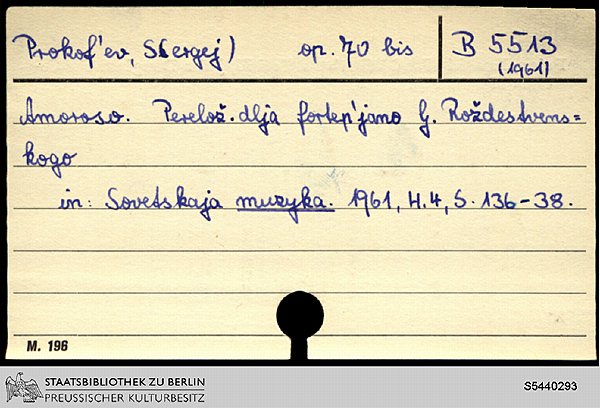 Prokof'ev, S(ergej) op. 70 bis B 5513
(1961)
Amoroso. Perelož. dlja fortep'jano G. Roždestvens=
kogo
in: Sovetskaja muzyka. 1961, H.4, S. 136-38.
M. 196
STAATSBIBLIOTHEK ZU BERLIN
PREUSSISCHER KULTURBESITZ
S5440293